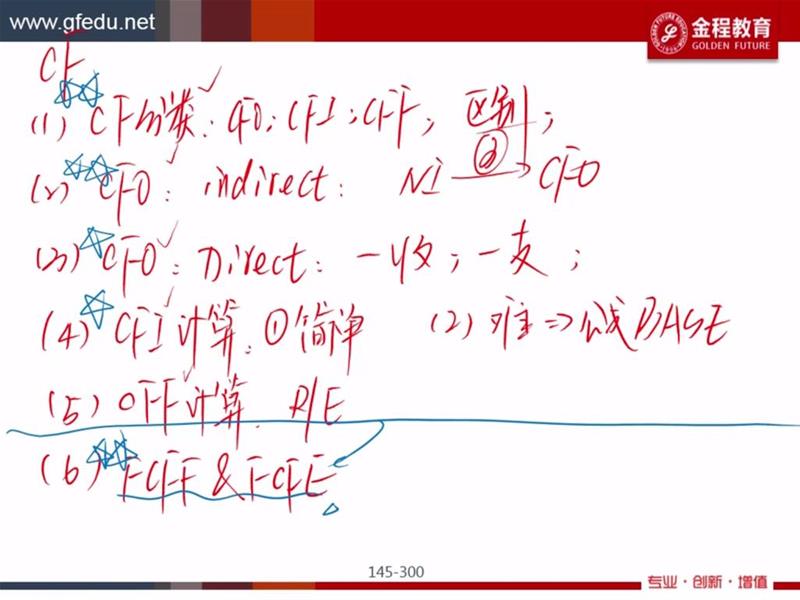 www.gfedu.net
金程教育
GOLDEN FUTURE
CF
(1) CF分类: CFO; CFI; CFF; 区别;
(2) CFO: indirect: NI → CFO
(3) CFO: Direct: 一收; 一支;
(4) CFI计算: ①简单 (2) 难⇒公式BASE
(5) CFF计算. R/E
(6) FCFF & FCFE
145-300
专业·创新·增值